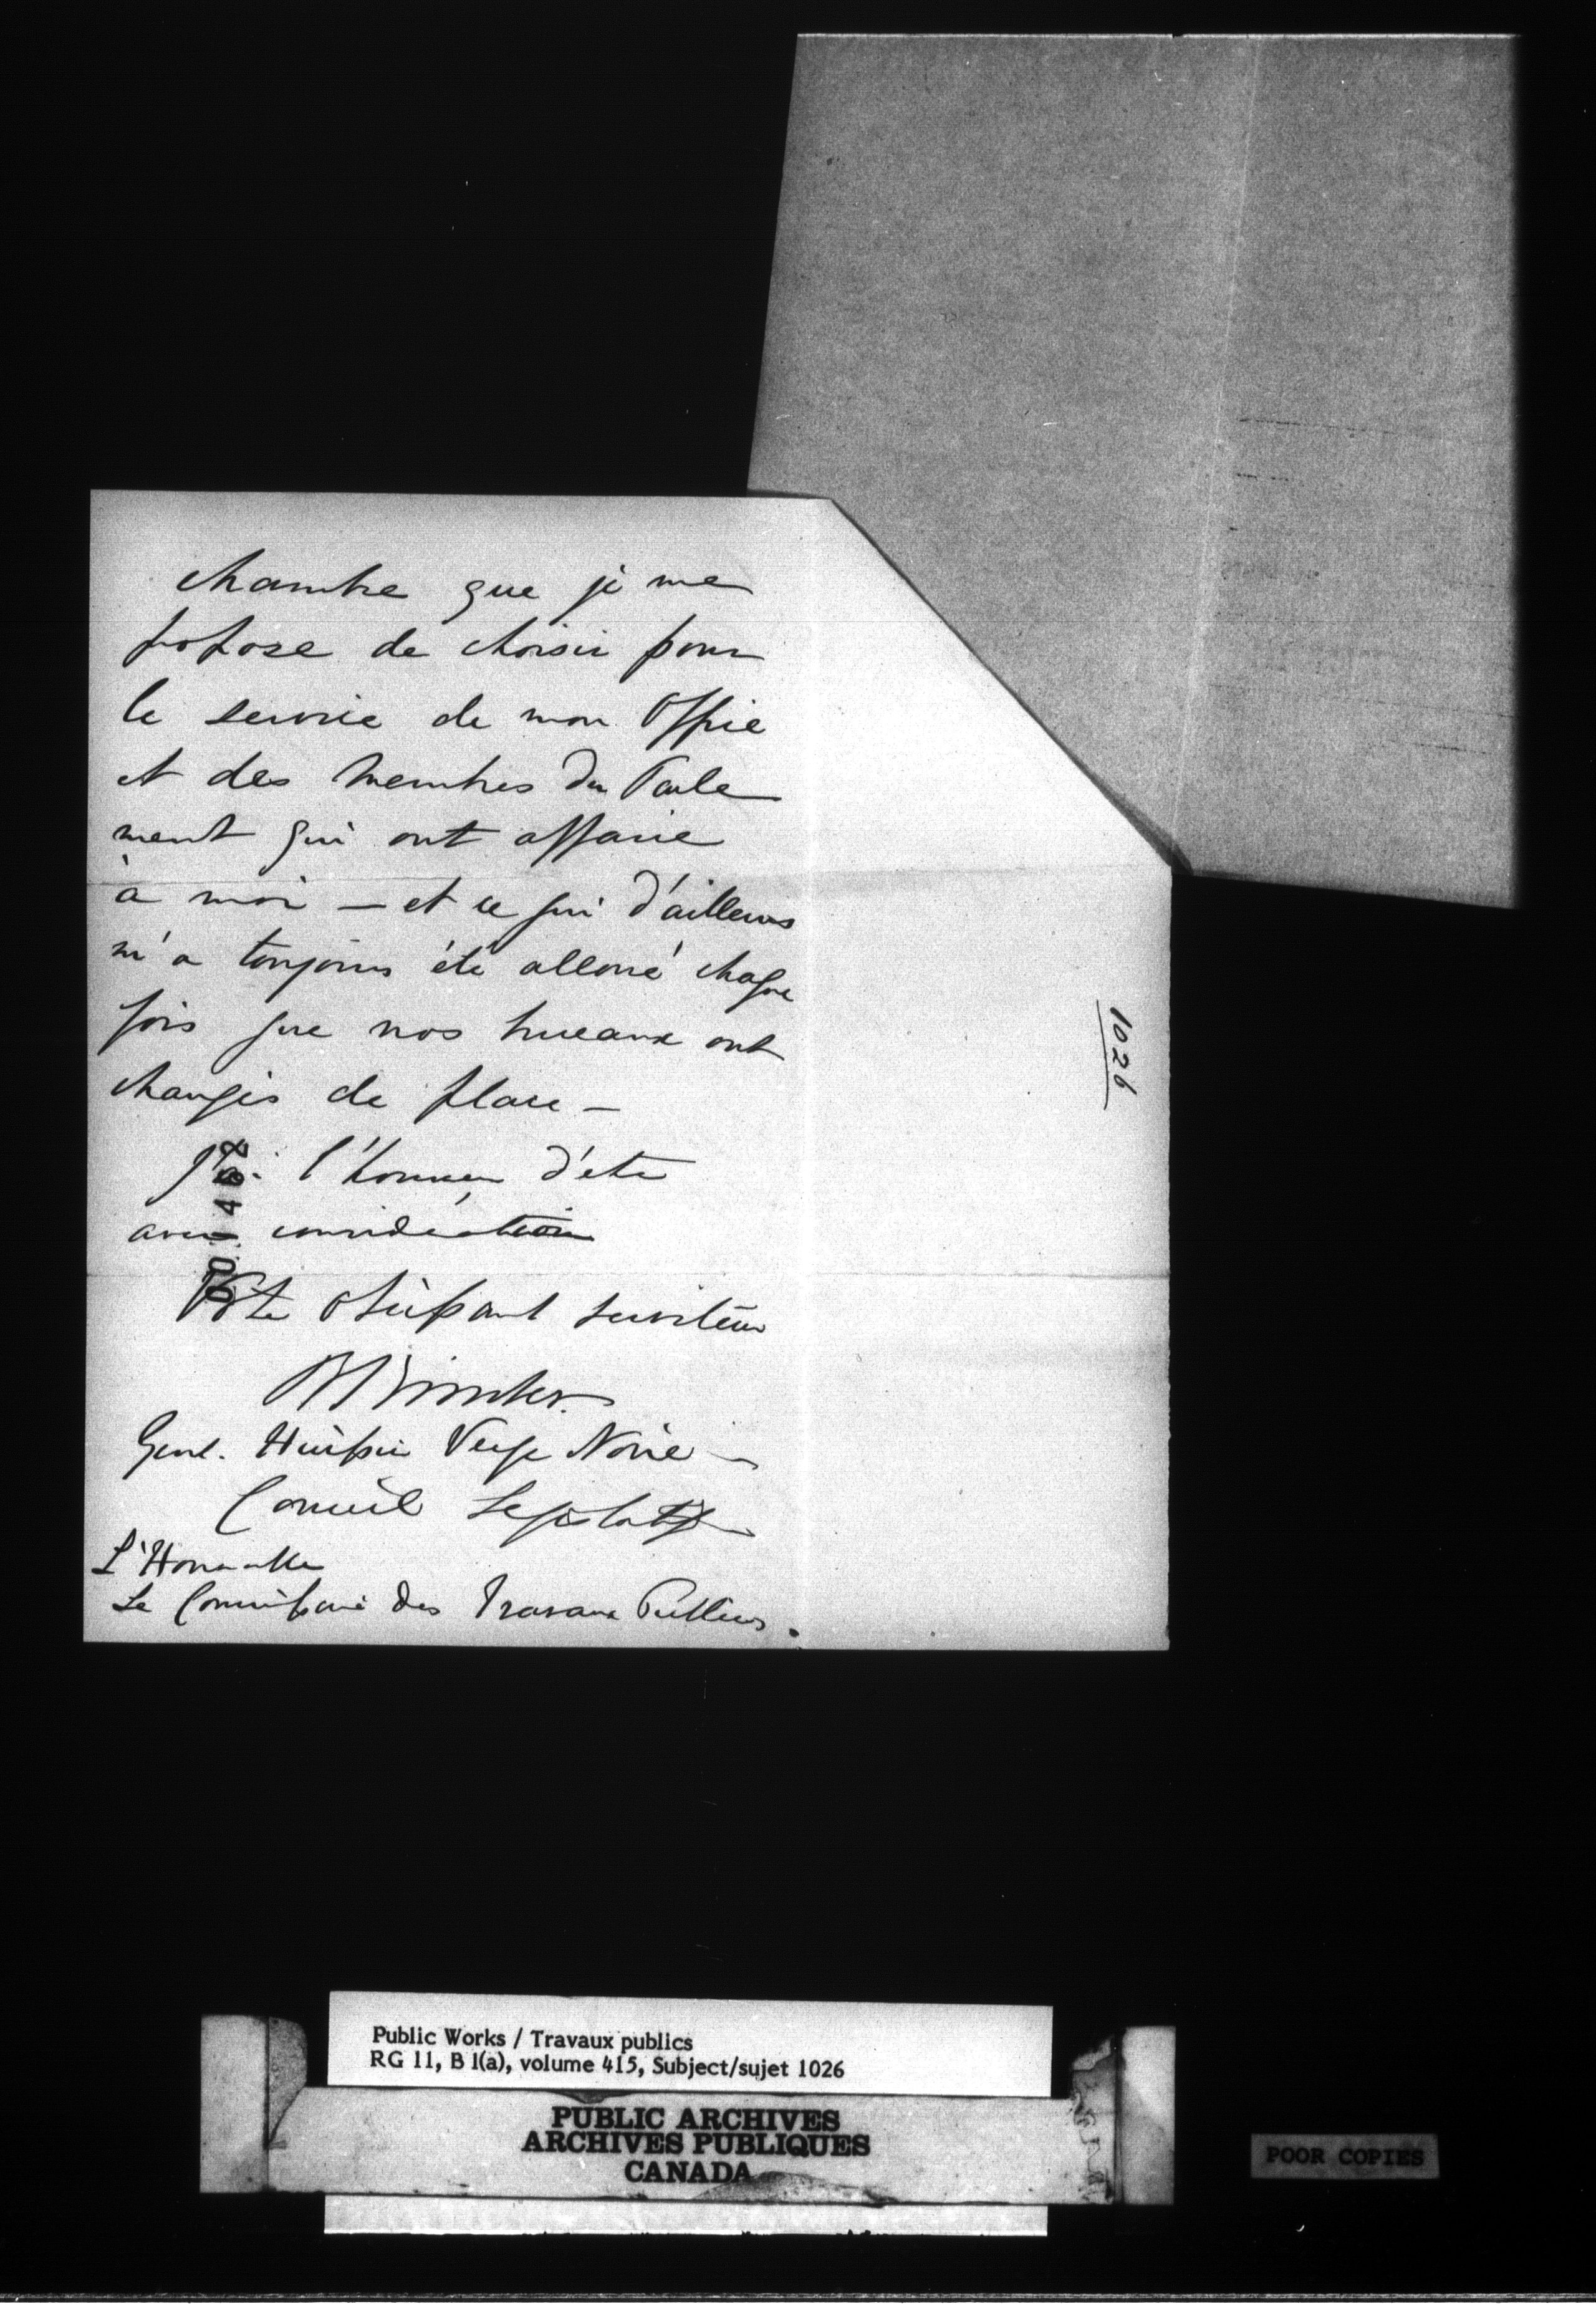 chambre que je me
propose de choisir pour
le service de mon Office
et des membres du Parle
ment qui ont affaire
à moi — et ce qui d'ailleurs
m'a toujours été alloué chaque
fois que nos bureaux ont
changés de place —
J'ai l'honneur d'etre
avec considération
Votre obéissant serviteur
Gent. Huissier Verge Noire —
Conseil Legislatif
L'Honorable
Le Commissaire des Travaux Publics.
1026
Public Works / Travaux publics
RG 11, B 1(a), volume 415, Subject/sujet 1026
PUBLIC ARCHIVES
ARCHIVES PUBLIQUES
CANADA
POOR COPIES